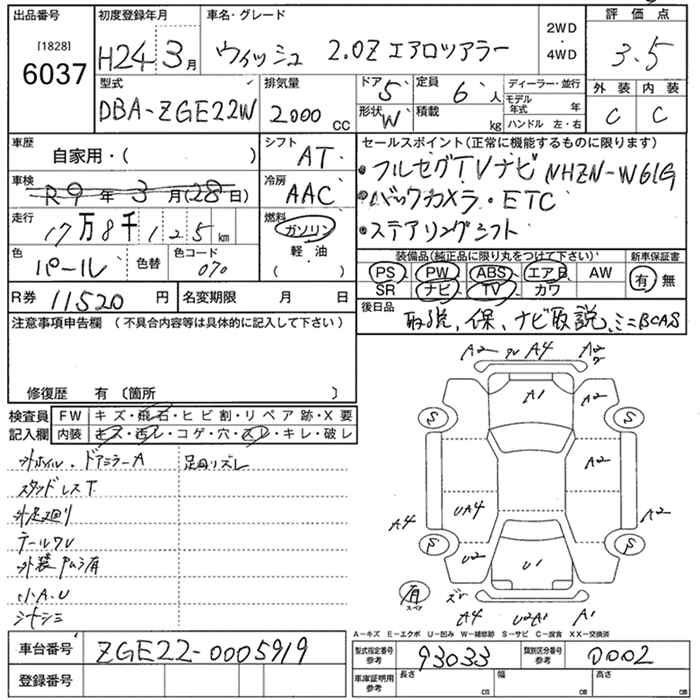 出品番号
[1828]
6037
初度登録年月
H24年3月
車名・グレード
ウィッシュ 2.0Z エアロツアラー
2WD
・
4WD
評価点
3.5
型式
DBA-ZGE22W
排気量
2000 CC
ドア 5
定員 6 人
形状 W
積載 kg
ディーラー・並行
モデル年式 年
ハンドル 左・右
外装 内装
C C
車歴
自家用・( )
シフト
AT
セールスポイント(正常に機能するものに限ります)
フルセグTVナビ NHZN-W61G
バックカメラ・ETC
ステアリングシフト
車検
R9年3月(28日)
冷房
AAC
走行
17万8千125km
燃料
ガソリン
軽油
( )
色
パール
色替
色コード
070
装備品(純正品に限り丸をつけて下さい)
PS PW ABS エアB AW
SR ナビ TV カワ
新車保証書
有・無
R券 11520円
名変期限 月 日
後日品
取説、保、ナビ取説、ミニBCAS
注意事項申告欄 (不具合内容等は具体的に記入して下さい)
修復歴 有 〔箇所 〕
検査員記入欄
FW キズ・飛石・ヒビ割・リペア跡・X要
内装 キズ・汚レ・コゲ・穴・スレ・キレ・破レ
外ホイル・ドアミラーA
足回リズレ
スタッドレスT
外足廻り
小A.U
A2 A4 A2
A1 A2
S S
A2
A4 UA4 A2
S S
U2 U1
有
スペア
ズレ
A4 U2A1 A1
A-キズ E-エクボ U-凹み W-補修跡 S-サビ C-腐食 XX-交換済
車台番号
ZGE22-0005919
登録番号
型式指定番号
参考
93033
類別区分番号
参考
0002
車庫証明用
参考
長さ cm
幅 cm
高さ cm